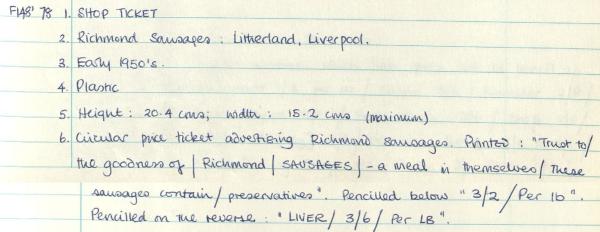 F1AB' 78 1. SHOP TICKET
2. Richmond Sausages : Litherland, Liverpool.
3. Early 1950's.
4. Plastic
5. Height : 20.4 cms; width : 15.2 cms (maximum)
6. Circular price ticket advertising Richmond sausages. Printed : "Trust to/
the goodness of / Richmond / SAUSAGES / - a meal in themselves / These
sausages contain / preservatives". Pencilled below "3/2 / Per lb".
Pencilled on the reverse : "LIVER / 3/6 / Per LB".